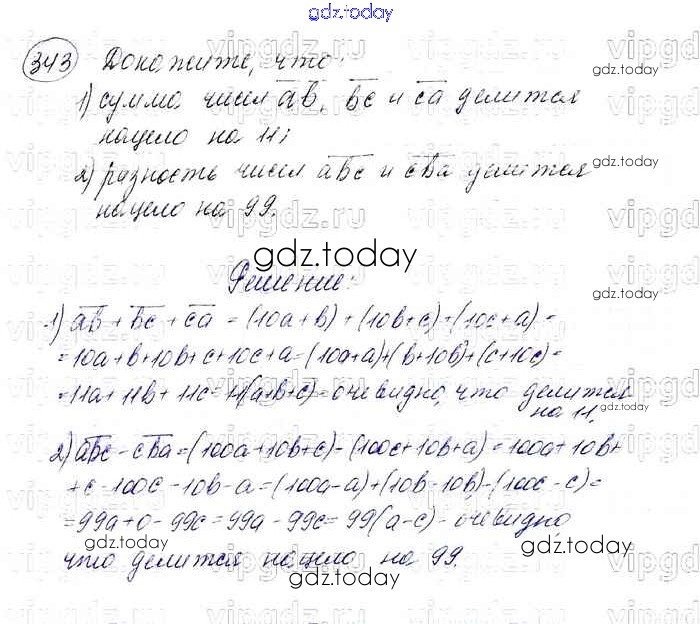 gdz.today
343 Докажите, что:
1) сумма чисел a̅b̅, b̅c̅ и c̅a̅ делится
нацело на 11;
2) разность чисел a̅b̅c̅ и c̅b̅a̅ делится
нацело на 99.
gdz.today
Решение:
1) a̅b̅ + b̅c̅ + c̅a̅ = (10a+b) + (10b+c) + (10c+a) =
= 10a+b+10b+c+10c+a = (10a+a)+(b+10b)+(c+10c) =
= 11a + 11b + 11c = 11(a+b+c) - очевидно, что делится
на 11.
2) a̅b̅c̅ - c̅b̅a̅ = (100a+10b+c) - (100c+10b+a) = 100a+10b+
+c-100c-10b-a = (100a-a)+(10b-10b)-(100c-c) =
= 99a+0-99c = 99a-99c = 99(a-c) - очевидно,
что делится нацело на 99.
gdz.today